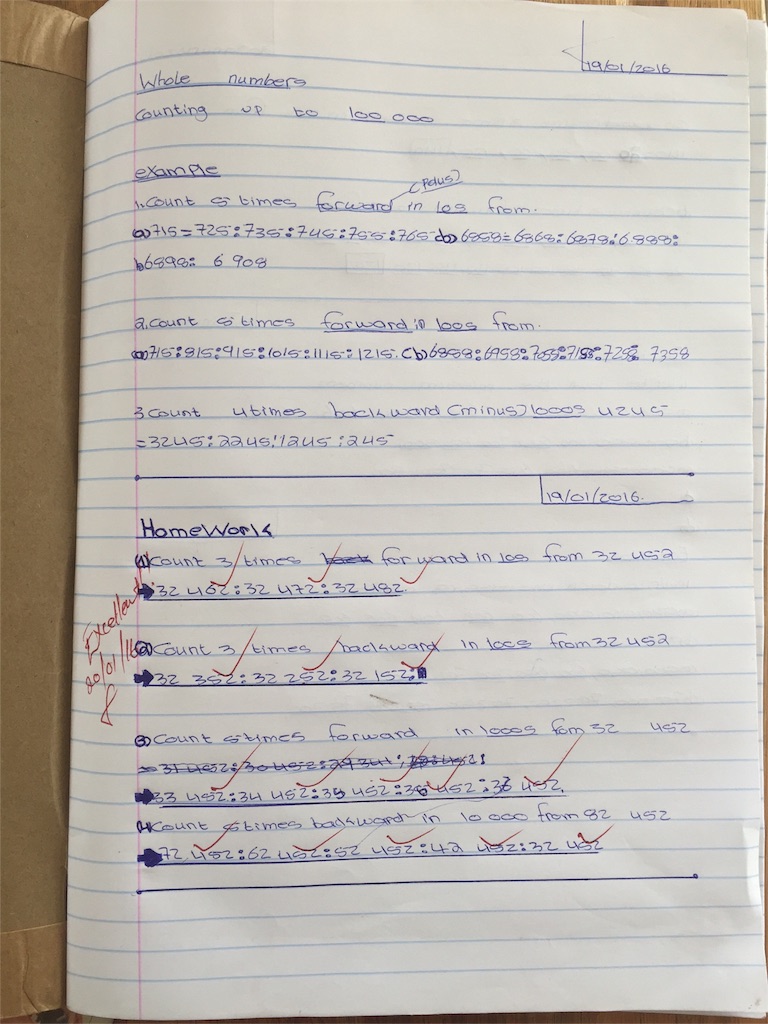 19/01/2016
Whole numbers
Counting up to 100 000
example
(Pelus)
1. Count 5 times forward in 10s from.
a) 715 = 725 : 735 : 745 : 755 : 765 (b) 6858 = 6868 : 6878 : 6 888 :
b) 6898 : 6 908
2. Count 5 times forward in 100s from.
a) 715 : 815 : 915 : 1015 : 1115 : 1215. (b) 6858 : 6958 : 7058 : 7158 : 7258 : 7358
3 Count 4 times backward (minus) 1000s 4245
= 3245 : 2245 : 1245 : 245
19/01/2016.
HomeWork
(1) Count 3 times back forward in 10s from 32 452
32 462 : 32 472 : 32 482.
(2) Count 3 times backward in 100s from 32 452
32 352 : 32 252 : 32 152 :
Excellent
20/01/16
(3) Count 5 times forward in 1000s fom 32 452
= 31 452 : 30 452 : 29 341 :
33 452 : 34 452 : 35 452 : 36 452 : 452.
4. Count 5 times backward in 10 000 from 82 452
72 452 : 62 452 : 52 452 : 42 452 : 32 452